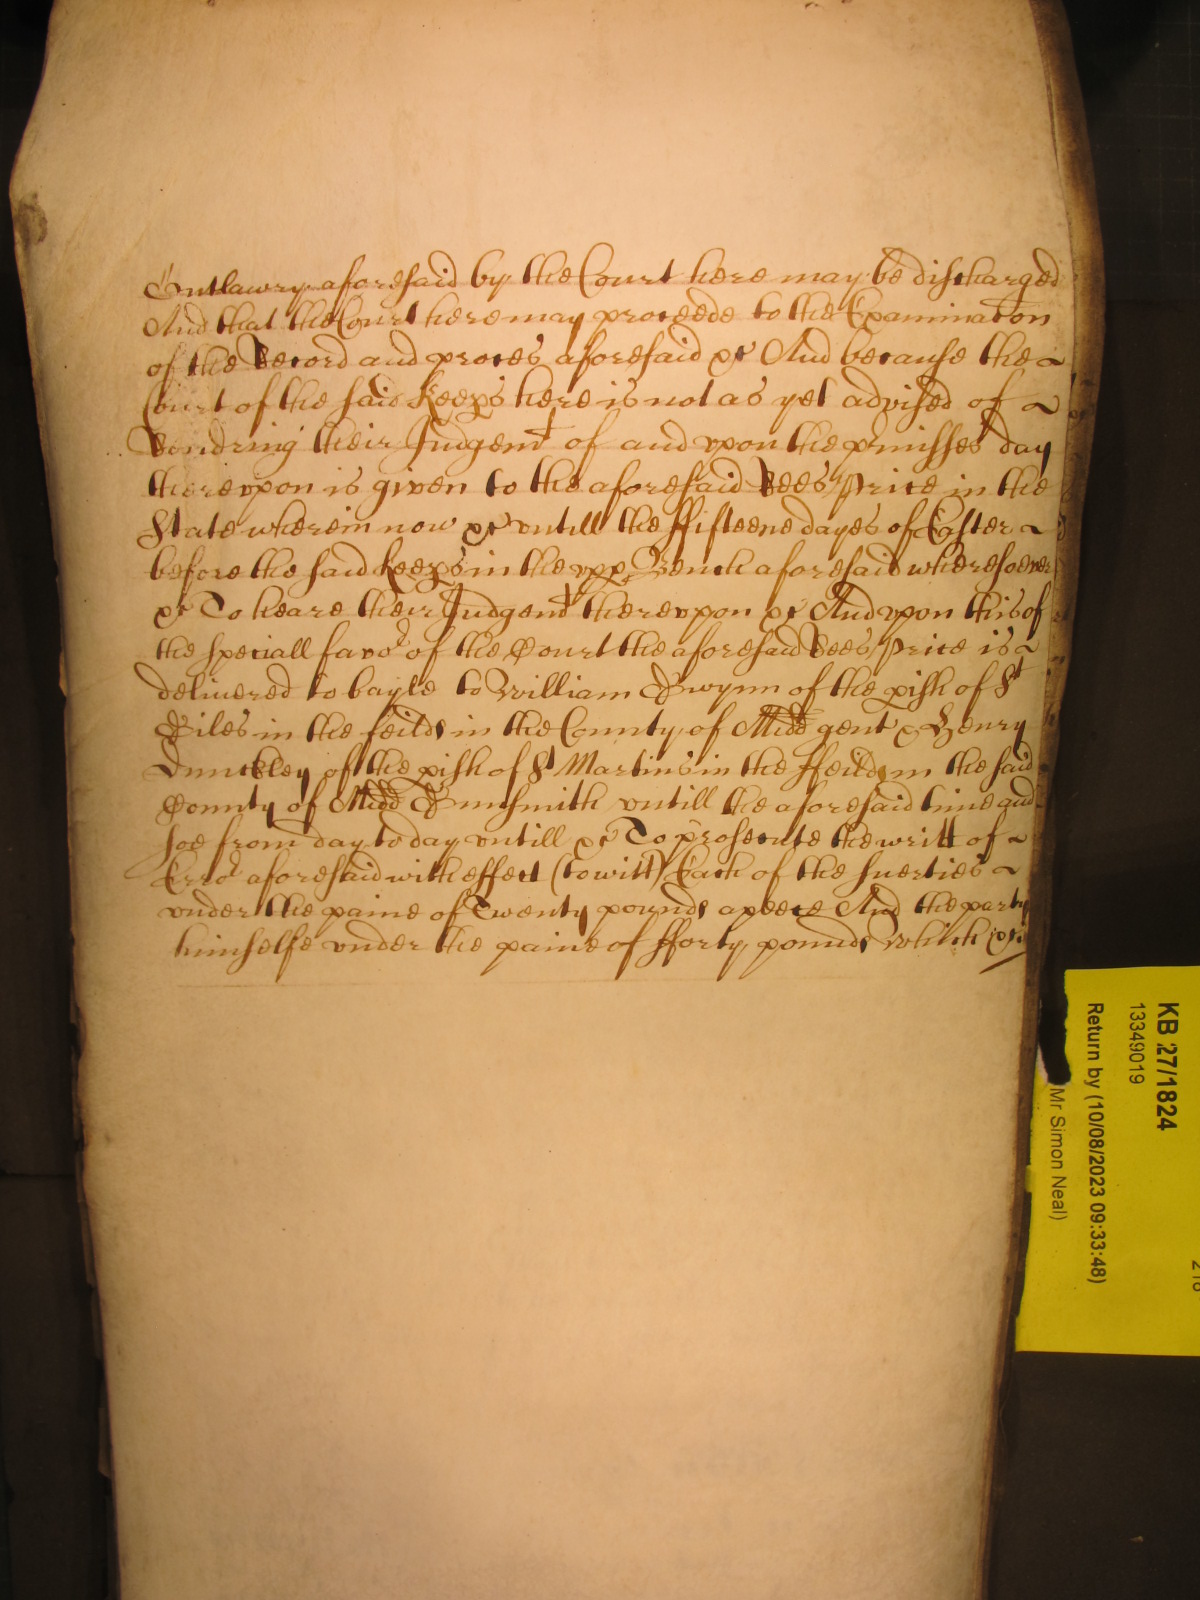 Outlawry aforesaid by the Court here may be discharged
And that the Court here may proceede to the Examinacon
of the Record and proces aforesaid &c And because the
Court of the said Keeps here is not as yet advised of
Rendring their Judgemt of and vpon the pmisses day
therevpon is given to the aforesaid Rees Price in the
State wherein now &c vntill the ffifteene dayes of Easter
before the said Keeps in the vpp Bench aforesaid wheresoever
&c To heare their Judgemt therevpon &c And vpon this of
the speciall favor of the Court the aforesaid Rees Price is
delivered to bayle to William Gwynn of the pish of St
Giles in the feilds in the County of Midd gent & Henry
Dunckley of the pish of St Martins in the ffeilds in the said
County of Midd Gunsmith vntill the aforesaid time and
soe from day to day vntill &c To prosecute the writt of
Error aforesaid with effect (to witt) Each of the suerties
vnder the paine of Twenty pounds apeece And the party
himselfe vnder the paine of fforty pounds Which
KB 27/1824
13349019
Return by (10/08/2023 09:33:48)
Mr Simon Neal)